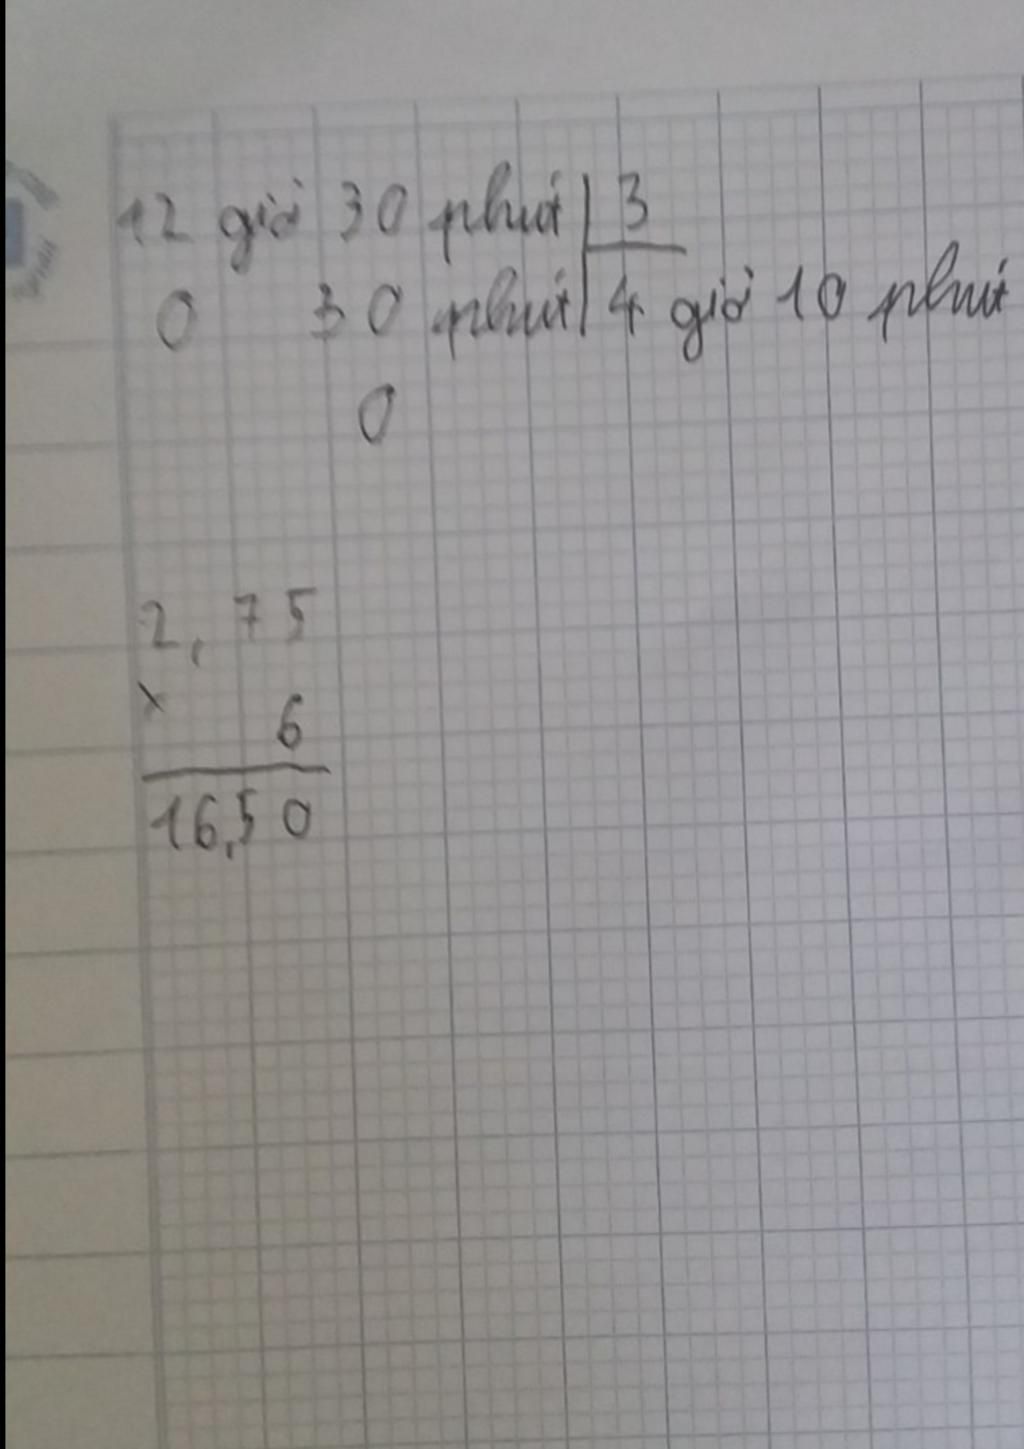 12 giờ 30 phút 3
0 30 phút 4 giờ 10 phút
0
2,75
×
6
16,50